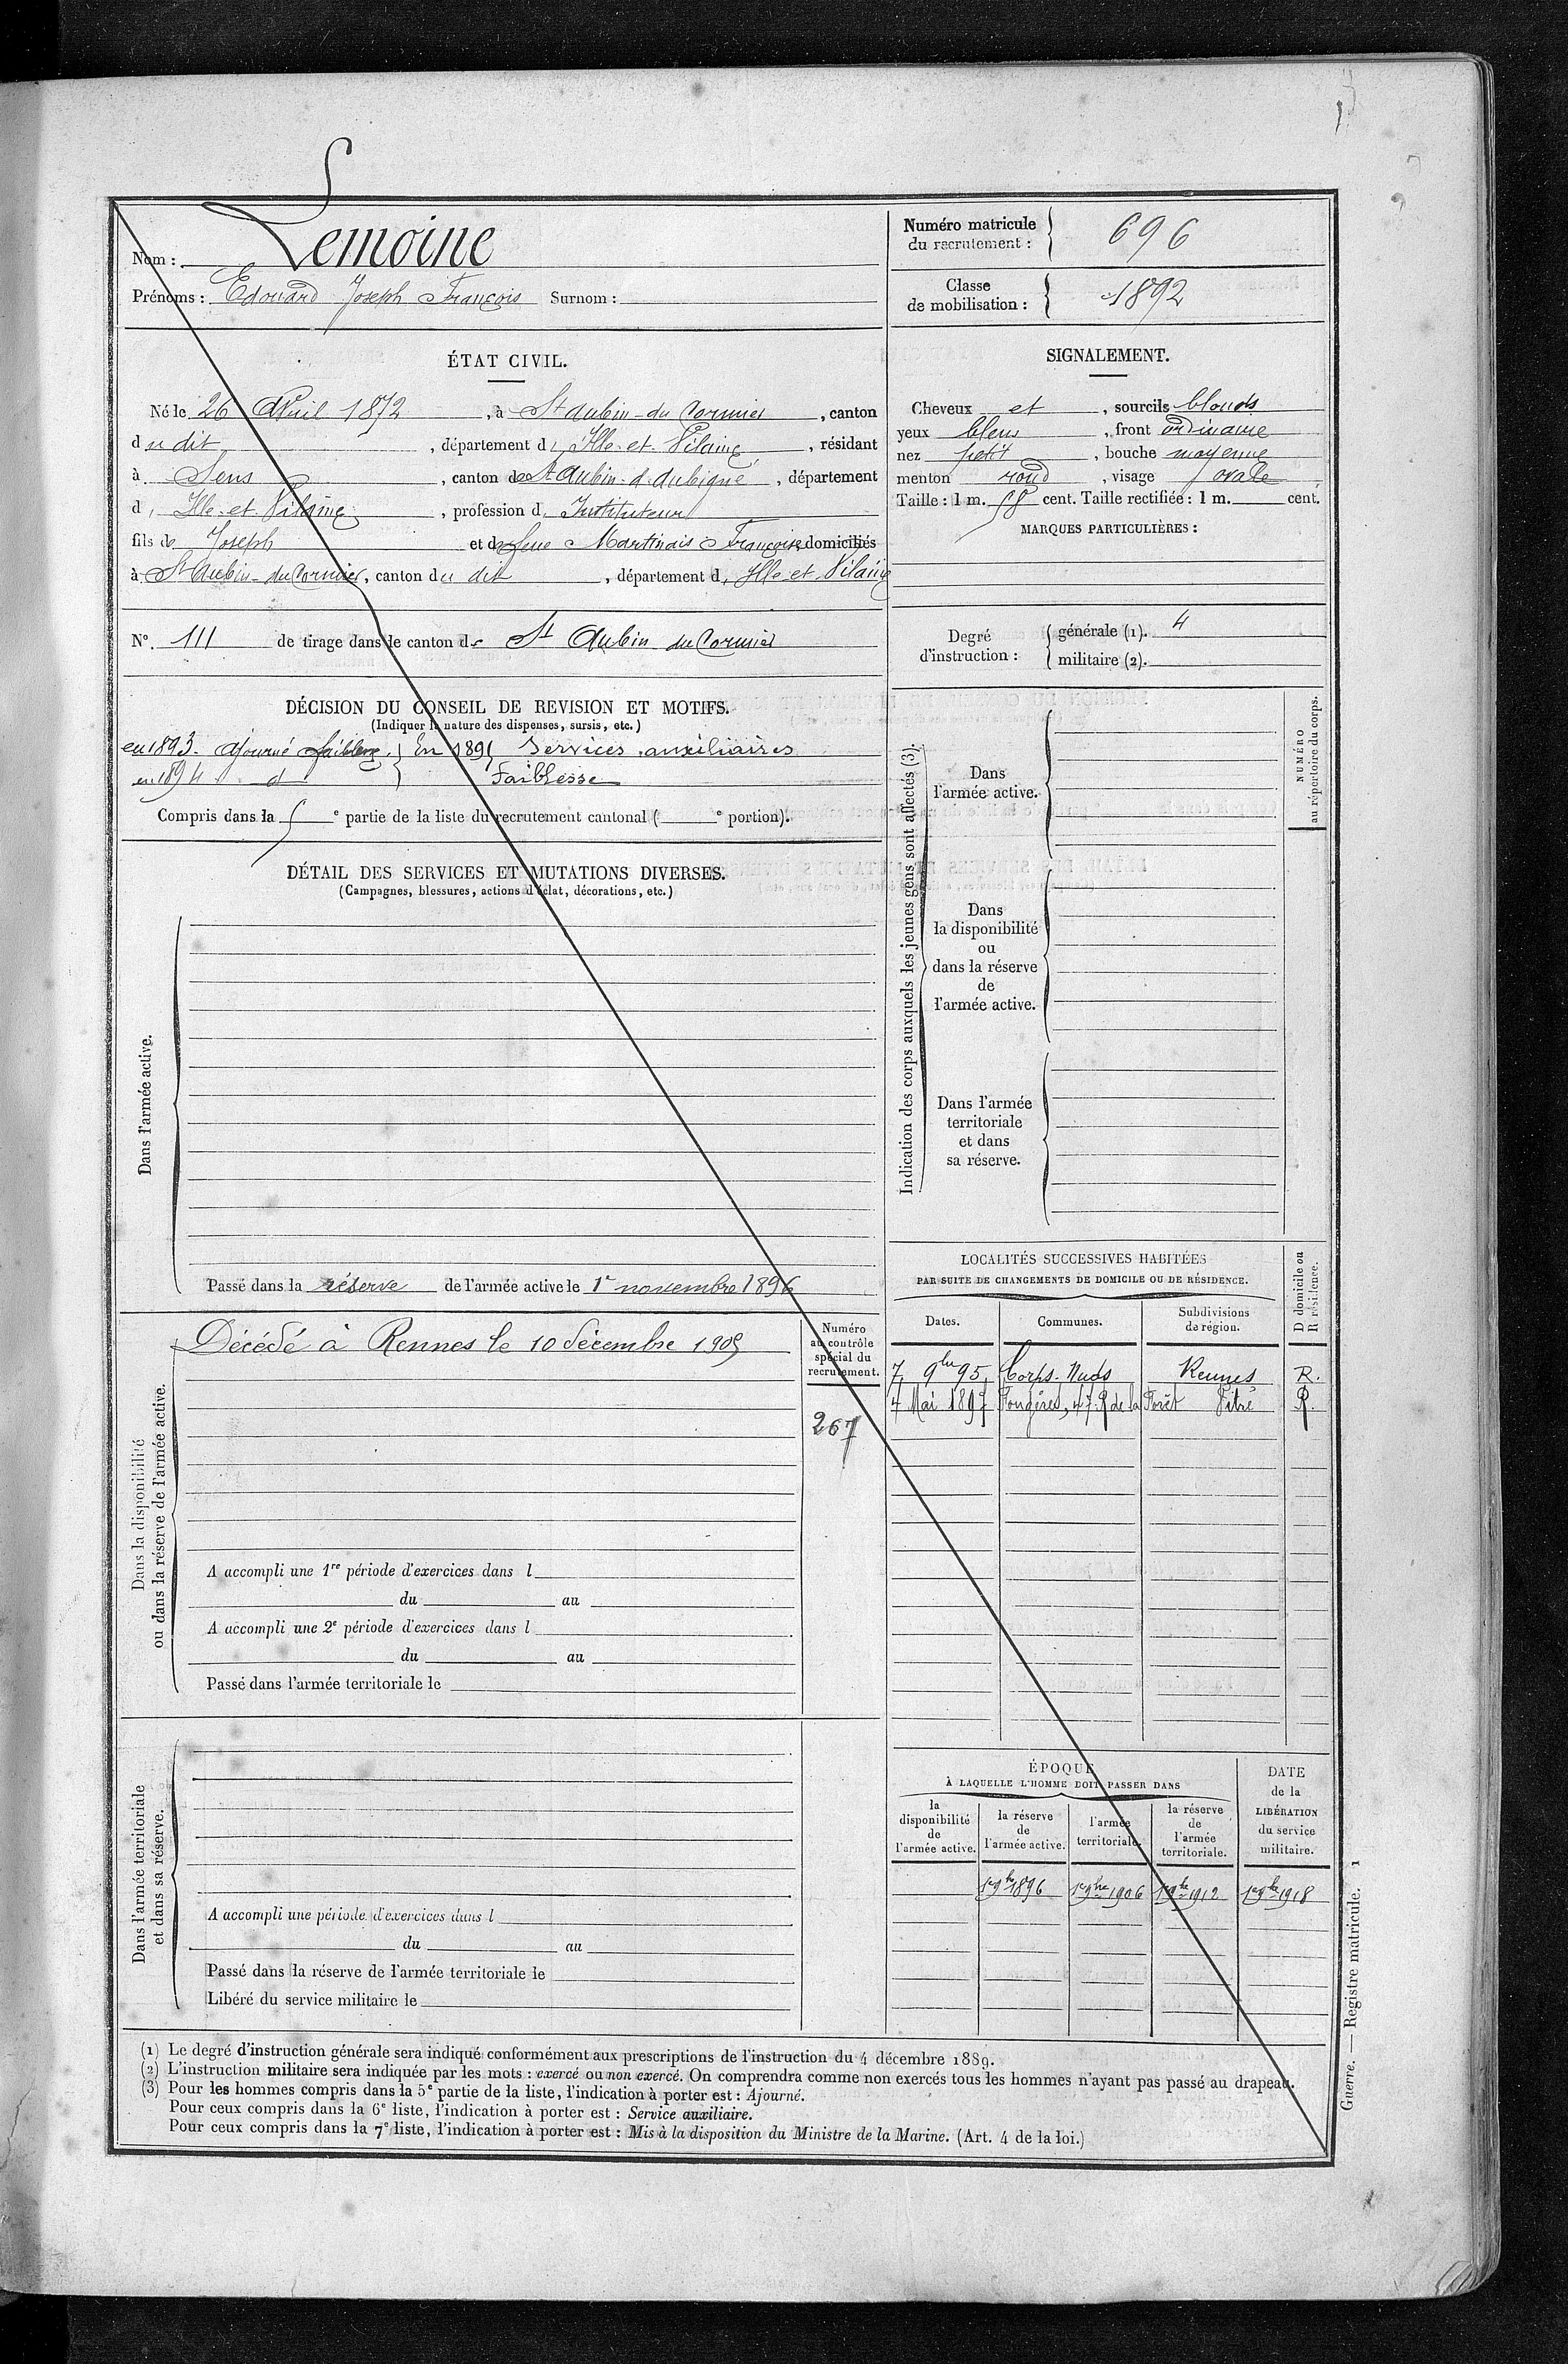 Nom : Lemoine
Prénoms : Edouard Joseph François Surnom :
Numéro matricule du recrutement : 696
Classe de mobilisation : 1892
ÉTAT CIVIL.
Né le 26 Avril 1872, à St Aubin-du Cormier, canton
du dit, département d' Ille-et-Vilaine, résidant
à Sens, canton de St Aubin-d'Aubigné, département
d' Ille-et-Vilaine, profession d' Instituteur
fils de Joseph et de feue Martinais Françoise domiciliés
à St Aubin-du Cormier, canton du dit, département d' Ille-et-Vilaine
N°. 111 de tirage dans le canton de St Aubin du Cormier
SIGNALEMENT.
Cheveux et, sourcils blonds
yeux bleus, front ordinaire
nez petit, bouche moyenne
menton rond, visage ovale
Taille : 1 m. 58 cent. Taille rectifiée : 1 m. cent.
MARQUES PARTICULIÈRES :
Degré d'instruction : générale (1). 4
militaire (2).
DÉCISION DU CONSEIL DE REVISION ET MOTIFS.
(Indiquer la nature des dispenses, sursis, etc.)
en 1893. Ajourné faiblesse } En 1895 Services auxiliaires
en 1894 d } Faiblesse
Compris dans la 5 e partie de la liste du recrutement cantonal ( e portion).
DÉTAIL DES SERVICES ET MUTATIONS DIVERSES.
(Campagnes, blessures, actions d'éclat, décorations, etc.)
Dans l'armée active.
Passé dans la réserve de l'armée active le 1er novembre 1896
Indication des corps auxquels les jeunes gens sont affectés (3).
Dans
l'armée active.
Dans
la disponibilité
ou
dans la réserve
de
l'armée active.
Dans l'armée
territoriale
et dans
sa réserve.
NUMÉRO
au répertoire du corps.
Dans la disponibilité
ou dans la réserve de l'armée active.
Décédé à Rennes le 10 décembre 1905
Numéro
au contrôle
spécial du
recrutement.
267
A accompli une 1re période d'exercices dans l
du au
A accompli une 2e période d'exercices dans l
du au
Passé dans l'armée territoriale le
LOCALITÉS SUCCESSIVES HABITÉES
PAR SUITE DE CHANGEMENTS DE DOMICILE OU DE RÉSIDENCE.
D domicile ou
R résidence.
Dates. Communes. Subdivisions de région.
7 9bre 95 Corps-Nuds Rennes R.
4 Mai 1897 Fougères, 47 R de la Forêt Vitré R.
Dans l'armée territoriale
et dans sa réserve.
A accompli une période d'exercices dans l
du au
Passé dans la réserve de l'armée territoriale le
Libéré du service militaire le
ÉPOQUE
À LAQUELLE L'HOMME DOIT PASSER DANS
la disponibilité de l'armée active.
la réserve de l'armée active.
l'armée territoriale.
la réserve de l'armée territoriale.
DATE de la LIBÉRATION du service militaire.
1er 9bre 1896 1er 9bre 1906 1er 9bre 1912 1er 9bre 1918
(1) Le degré d'instruction générale sera indiqué conformément aux prescriptions de l'instruction du 4 décembre 1889.
(2) L'instruction militaire sera indiquée par les mots : exercé ou non exercé. On comprendra comme non exercés tous les hommes n'ayant pas passé au drapeau.
(3) Pour les hommes compris dans la 5e partie de la liste, l'indication à porter est : Ajourné.
Pour ceux compris dans la 6e liste, l'indication à porter est : Service auxiliaire.
Pour ceux compris dans la 7e liste, l'indication à porter est : Mis à la disposition du Ministre de la Marine. (Art. 4 de la loi.)
Guerre. — Registre matricule. 1